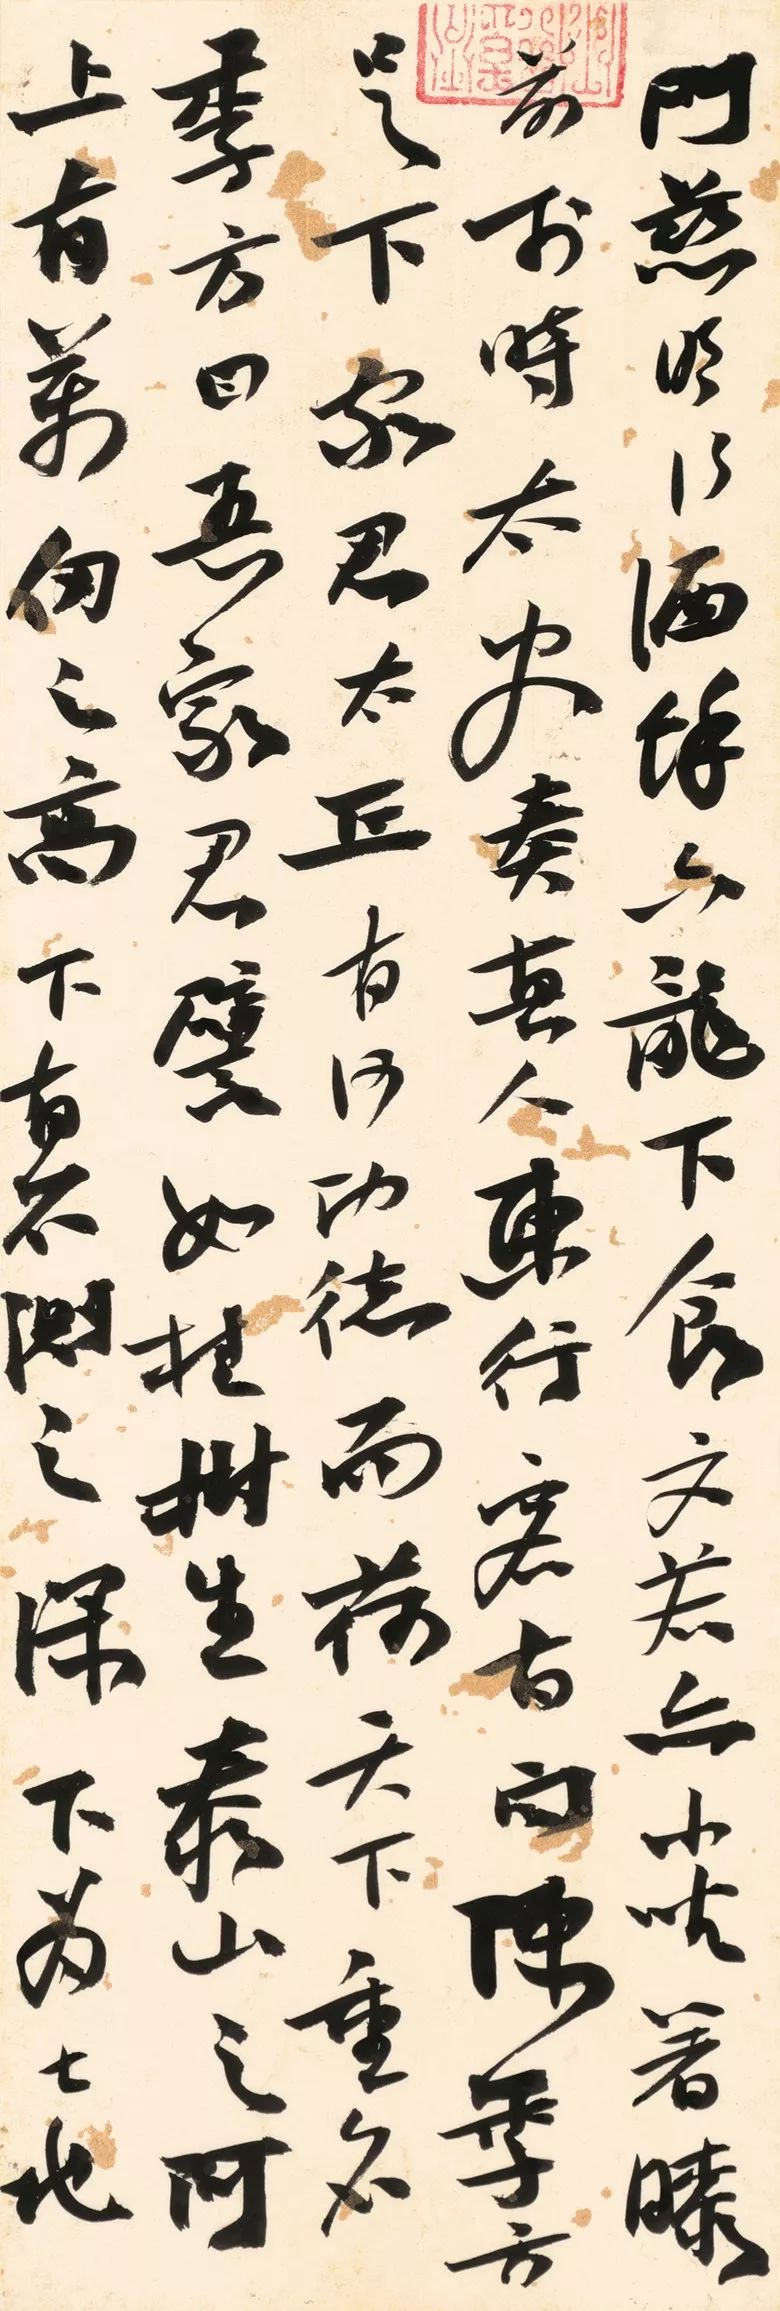 門慈明行酒餘六龍下食文若亦小坐著膝
前于時太史奏真人東行客有問陳季方
足下家君太丘有何功德而荷天下重名
季方曰吾家君譬如桂樹生泰山之阿
上有萬仞之高下有不測之深下為地